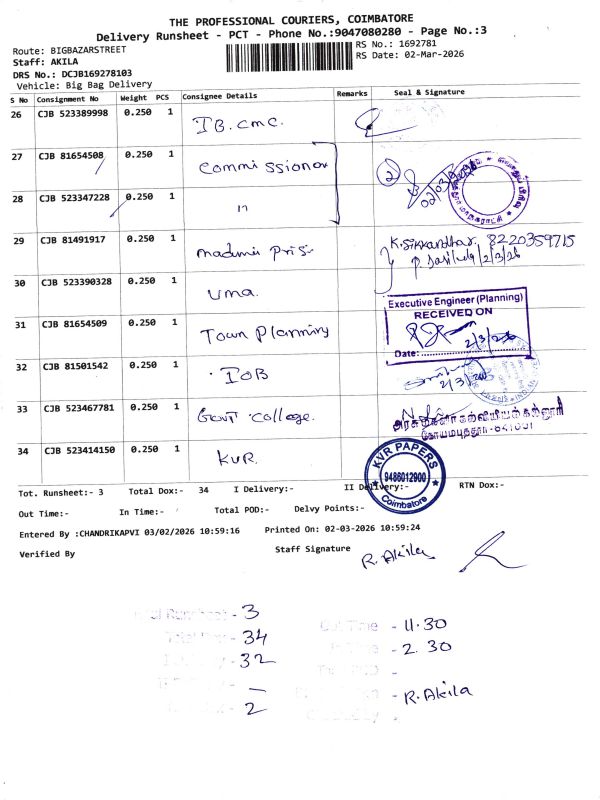 THE PROFESSIONAL COURIERS, COIMBATORE
Delivery Runsheet - PCT - Phone No.:9047080280 - Page No.:3
Route: BIGBAZARSTREET
RS No.: 1692781
Staff: AKILA
RS Date: 02-Mar-2026
DRS No.: DCJB169278103
Vehicle: Big Bag Delivery
S No Consignment No Weight PCS Consignee Details Remarks Seal & Signature
26 CJB 523389998 0.250 1 IB. cmc.
27 CJB 81654508 0.250 1 Commissioner 2
28 CJB 523347228 0.250 1 "
29 CJB 81491917 0.250 1 K. Sikkandhar 8220359715
2/3/26
30 CJB 523390328 0.250 1 Uma.
Executive Engineer (Planning)
RECEIVED ON
31 CJB 81654509 0.250 1 Town Planning
Date: 2/3/26
32 CJB 81501542 0.250 1 IOB
33 CJB 523467781 0.250 1 Govt College.
34 CJB 523414150 0.250 1 KVR.
KVR PAPERS
9486012900
Coimbatore
Tot. Runsheet:- 3 Total Dox:- 34 I Delivery:- II Delivery:- RTN Dox:-
Out Time:- In Time:- Total POD:- Delvy Points:-
Entered By :CHANDRIKAPVI 03/02/2026 10:59:16 Printed On: 02-03-2026 10:59:24
Verified By Staff Signature R. Akila
- 3
- 34
- 32
-
- 2
Out Time - 11.30
- 2.30
- R. Akila